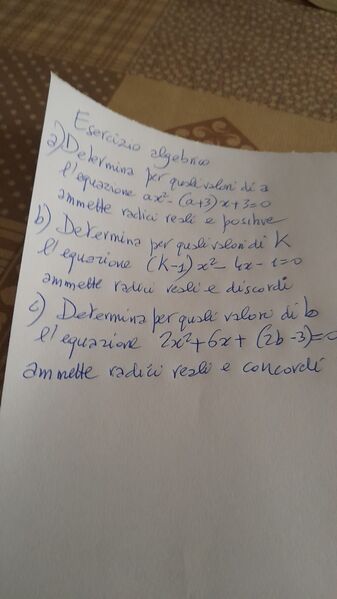 Esercizio algebrico
a) Determina per quali valori di a
l'equazione ax² - (a+3)x+3=0
ammette radici reali e positive
b) Determina per quali valori di K
l'equazione (K-1)x² - 4x - 1=0
ammette radici reali e discordi
c) Determina per quali valori di b
l'equazione 2x²+6x+(2b-3)=0
ammette radici reali e concordi